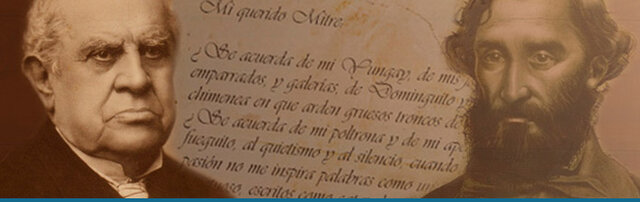 Mi querido Mitre:
¿Se acuerda de mi Yungay, de mis
emparrados, y galerías, de Dominguito y
chimenea en que arden gruesos troncos de
¿Se acuerda de mi poltrona y de mi
fueguito, al quietismo y al silencio, cuando
pasión no me inspira palabras como
escritos como